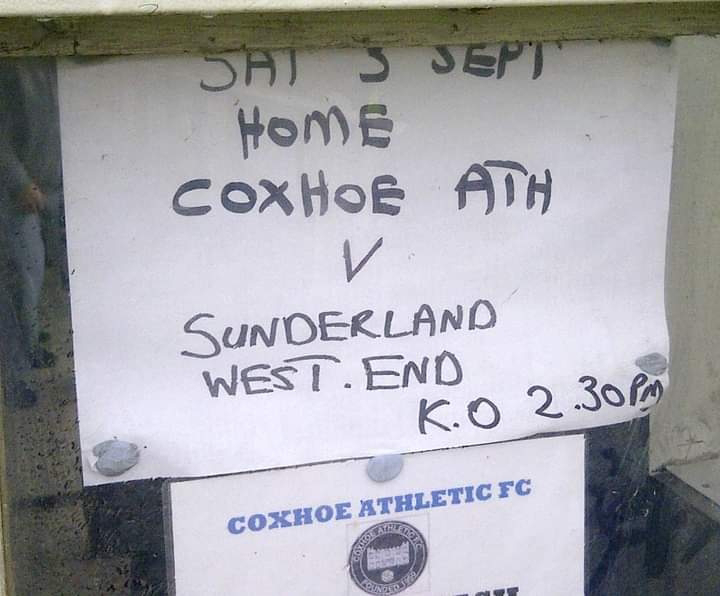 SAT 3 SEPT
HOME
COXHOE ATH
V
SUNDERLAND
WEST. END
K.O 2.30PM
COXHOE ATHLETIC FC
COXHOE ATHLETIC F.C.
FOUNDED